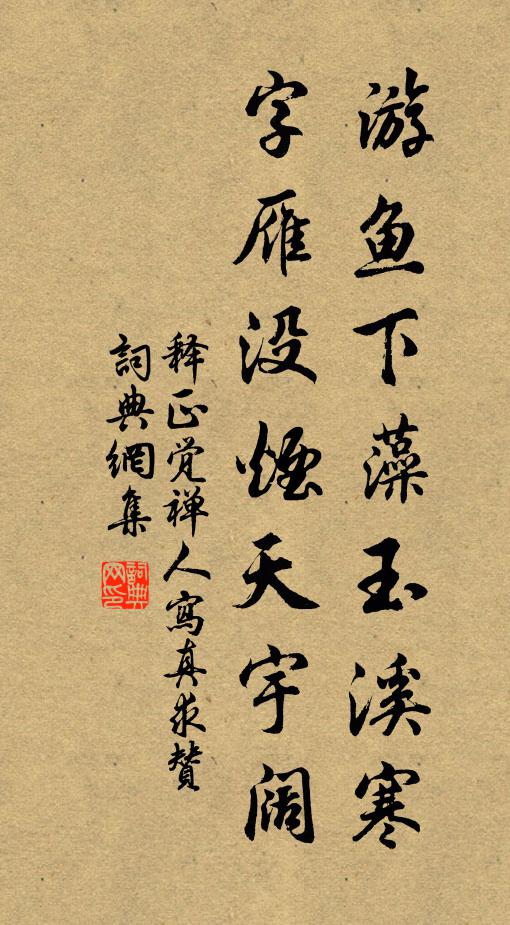 游鱼下藻玉溪寒
字雁没烟天宇阔
释正觉禅人寫真求赞
詞典網集
詞典网印